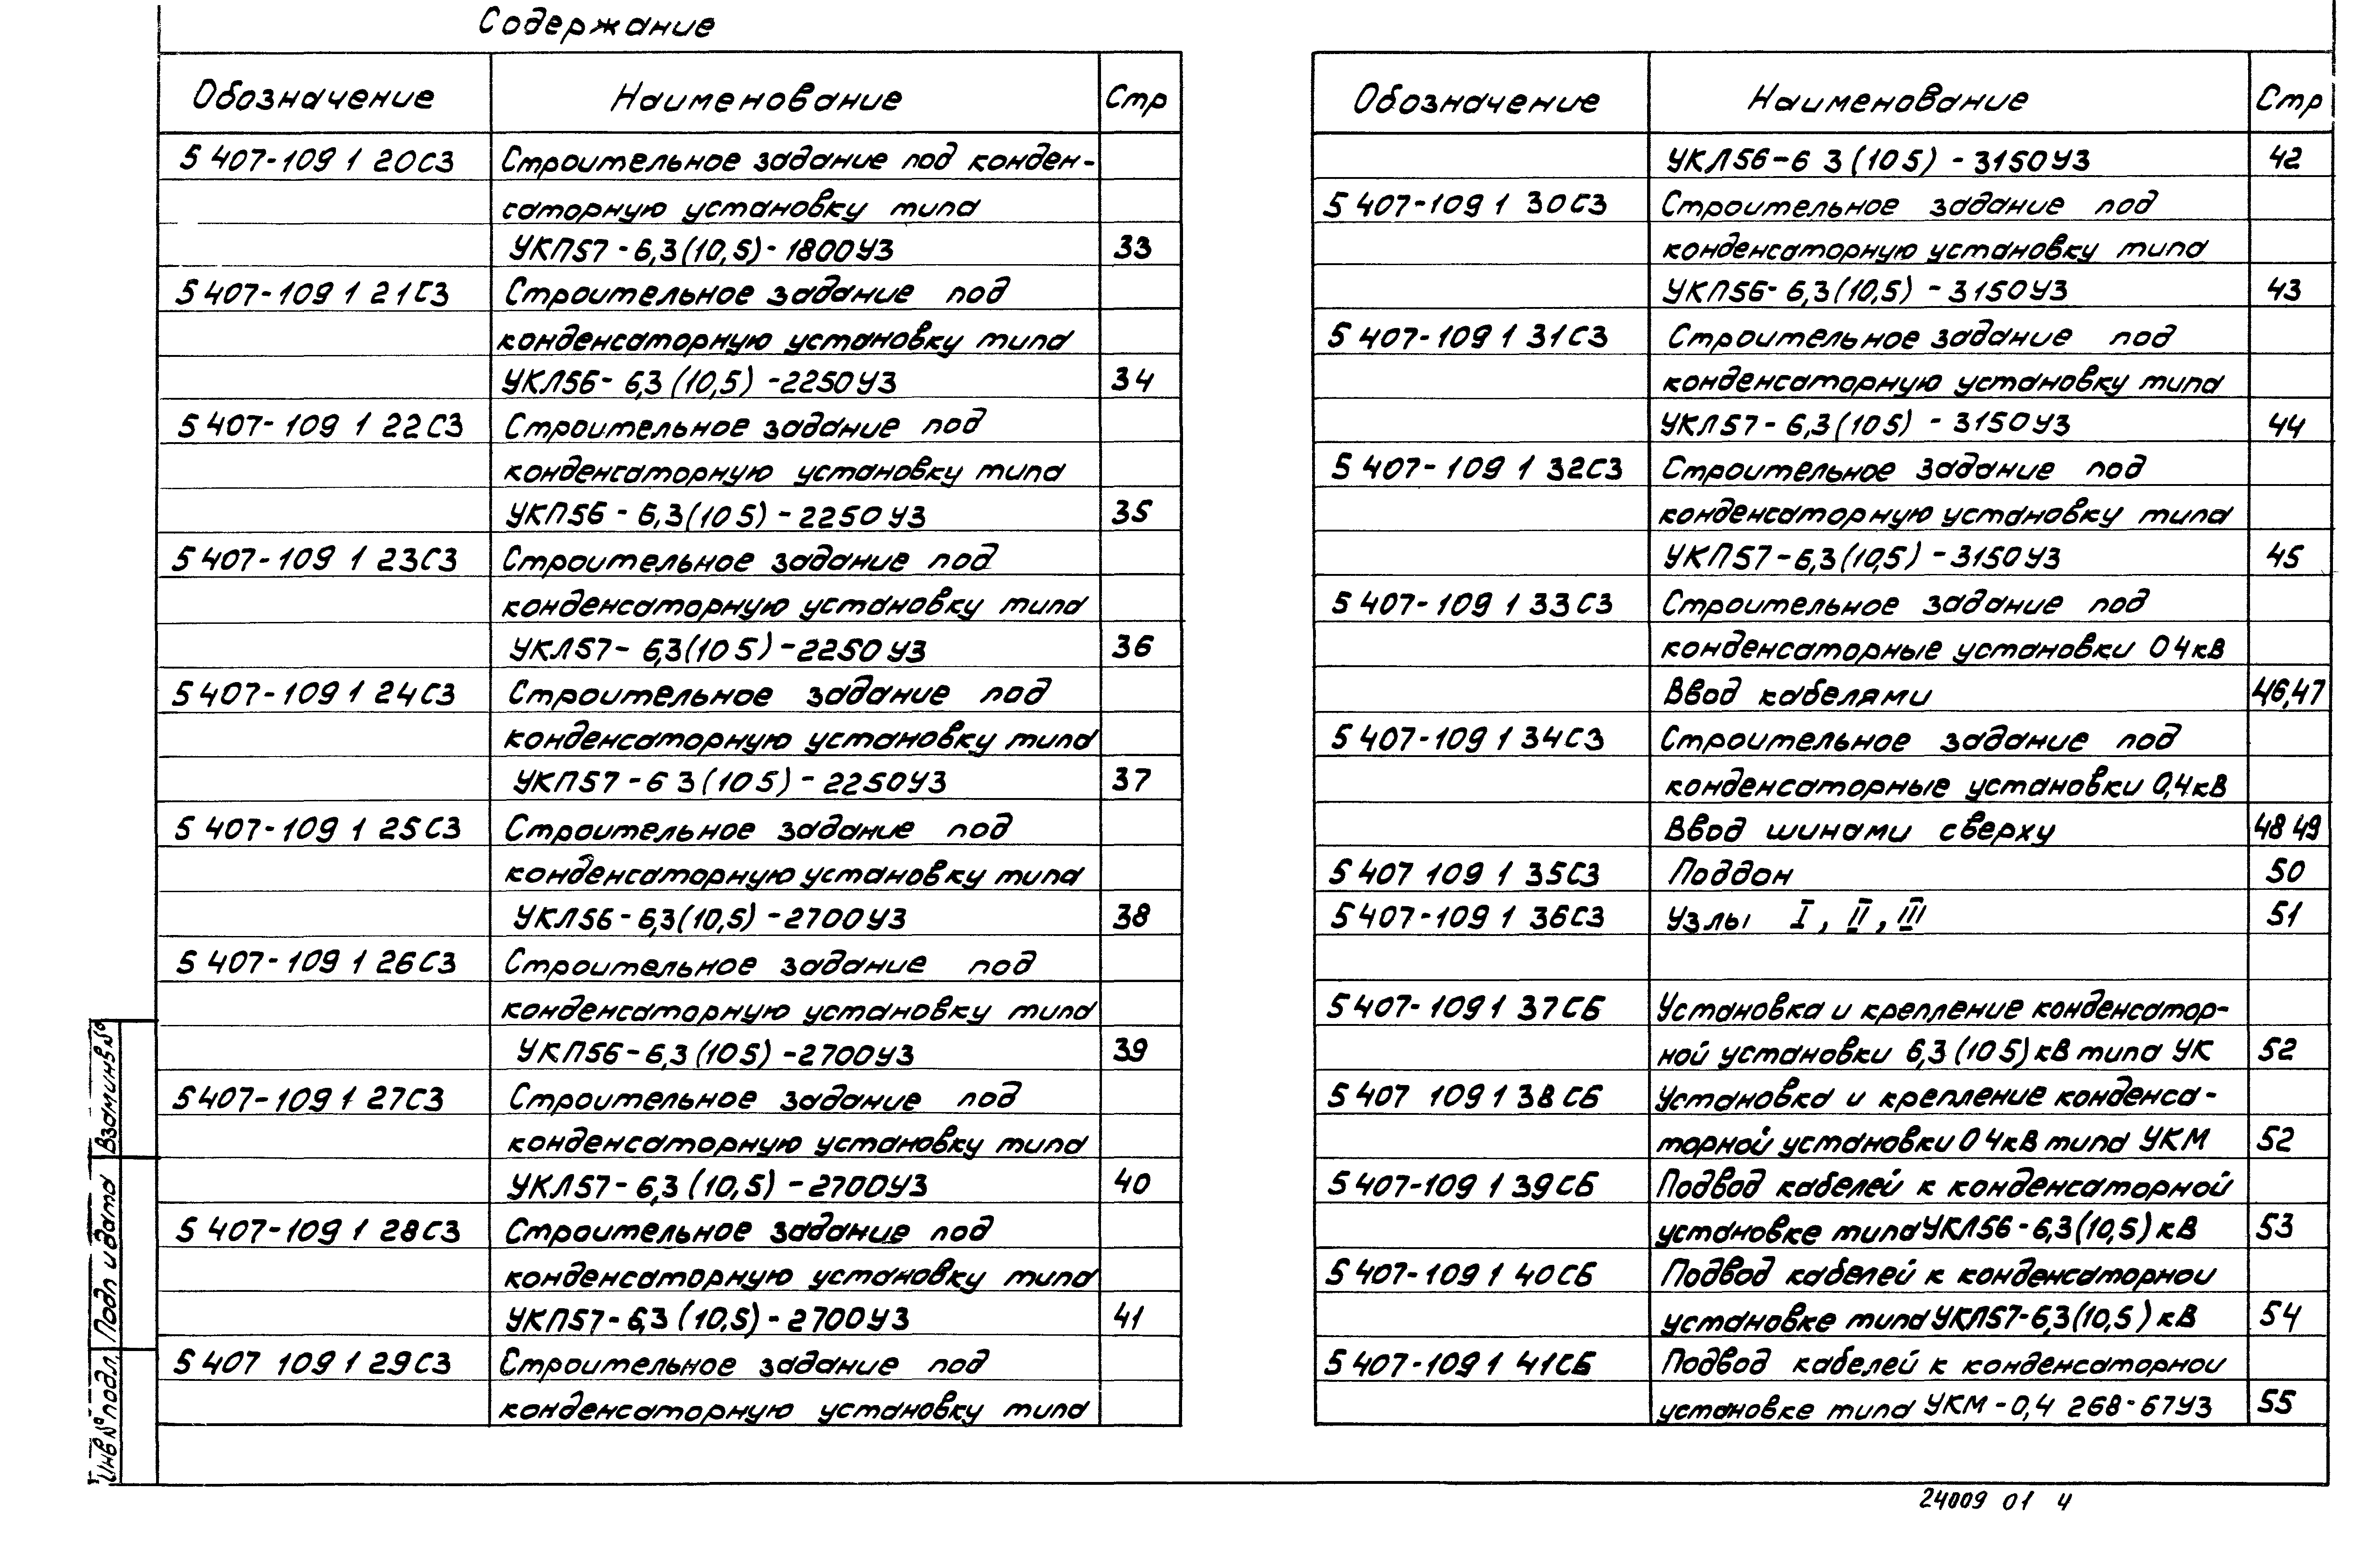 Содержание
Обозначение Наименование Стр
5 407-109 1 20СЗ Строительное задание под конден-
саторную установку типа
УКП57-6,3(10,5)-1800У3 33
5 407-109 1 21СЗ Строительное задание под
конденсаторную установку типа
УКЛ56-6,3(10,5)-2250У3 34
5 407-109 1 22СЗ Строительное задание под
конденсаторную установку типа
УКП56-6,3(10 5)-2250У3 35
5 407-109 1 23СЗ Строительное задание под
конденсаторную установку типа
УКЛ57-6,3(10 5)-2250У3 36
5 407-109 1 24СЗ Строительное задание под
конденсаторную установку типа
УКП57-6 3(10 5)-2250У3 37
5 407-109 1 25СЗ Строительное задание под
конденсаторную установку типа
УКЛ56-6,3(10,5)-2700У3 38
5 407-109 1 26СЗ Строительное задание под
конденсаторную установку типа
УКП56-6,3(10 5)-2700У3 39
5 407-109 1 27СЗ Строительное задание под
конденсаторную установку типа
УКЛ57-6,3(10,5)-2700У3 40
5 407-109 1 28СЗ Строительное задание под
конденсаторную установку типа
УКП57-6,3(10,5)-2700У3 41
5 407 109 1 29СЗ Строительное задание под
конденсаторную установку типа
Обозначение Наименование Стр
УКЛ56-6 3(10 5)-3150У3 42
5 407-109 1 30СЗ Строительное задание под
конденсаторную установку типа
УКП56-6,3(10,5)-3150У3 43
5 407-109 1 31СЗ Строительное задание под
конденсаторную установку типа
УКЛ57-6,3(10 5)-3150У3 44
5 407-109 1 32СЗ Строительное задание под
конденсаторную установку типа
УКП57-6,3(10,5)-3150У3 45
5 407-109 1 33СЗ Строительное задание под
конденсаторные установки 0 4кВ
Ввод кабелями 46,47
5 407-109 1 34СЗ Строительное задание под
конденсаторные установки 0,4кВ
Ввод шинами сверху 48 49
5 407 109 1 35СЗ Поддон 50
5 407-109 1 36СЗ Узлы I, II, III 51
5 407-109 1 37СБ Установка и крепление конденсатор-
ной установки 6,3(10 5)кВ типа УК 52
5 407 109 1 38СБ Установка и крепление конденса-
торной установки 0 4кВ типа УКМ 52
5 407-109 1 39СБ Подвод кабелей к конденсаторной
установке типа УКЛ56-6,3(10,5)кВ 53
5 407-109 1 40СБ Подвод кабелей к конденсаторнои
установке типа УКЛ57-6,3(10,5)кВ 54
5 407-109 1 41СБ Подвод кабелей к конденсаторнои
установке типа УКМ-0,4 268-67У3 55
Взам инв №
Подп и дата
Инв № подл.
24009 01 4